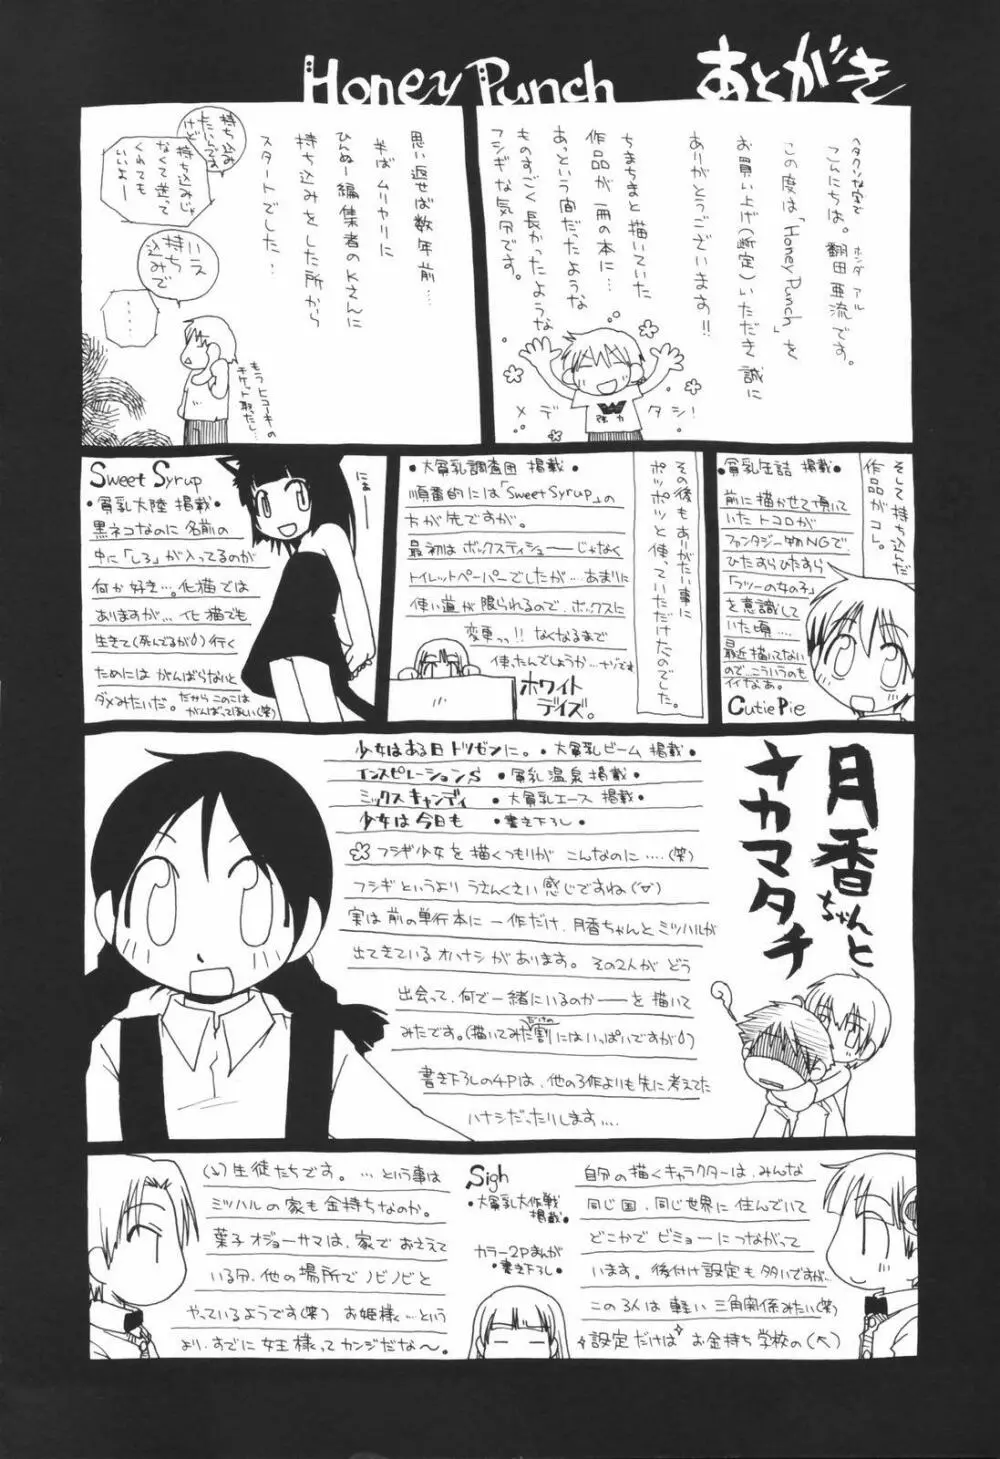 Honey Punch あとがき
ヘタクソな字で
こんにちは。翻田亜流です。
ホンダ アル
この度は「Honey Punch」を
お買い上げ(断定)いただき誠に
ありがとうございます!!
ちまちまと描いていた
作品が一冊の本に…
あっという間だったような
ものすごく長かったような
フシギな気分です。
メデタシ!
思い返せば数年前…
半ばムリヤリに
ひんぬー編集者のKさんに
持ち込みをした所から
スタートでした!
持ち込み
したいんです
けど
持ち込みじゃ
なくて送って
くれても
いいよー
いえ
持ち
込みで
……
もうヒコーキの
チケット取たし…
そして持ち込んだ
作品がコレ。
●貧乳缶詰 掲載●
前に描かせて頂いて
いたトコロが
ファンタジー物NGで、
ひたすらひたすら
「フツーの女の子」
を意識して
いた頃……
最近描いてない
ので…こういうのも
イイなぁ。
Cutie Pie
その後もありがたい事に
ポツポツと使っていただけたのでした。
●大貧乳調査団 掲載●
順番的には「Sweet Syrup」の
方が先ですが。
最初はボックスティシューじゃなく
トイレットペーパーでしたが……あまりに
使い道が限られるので、ボックスに
変更っっ!! なくなるまで
使ったんでしょうか…ナゾです
ホワイト
デイズ。
Sweet Syrup
●貧乳大陸 掲載●
黒ネコなのに名前の
中に「しろ」が入ってるのが
何か好き…。化猫では
ありますが…化猫でも
生きて(死んでるが)行く
ためには がんばらないと
ダメみたいだ。だからこのこは
がんばってほしい(笑)
にぁ
月香ちゃんと
ナカマタチ
少女はある日トツゼンに。●大貧乳ビーム 掲載●
インスピレーションS ●貧乳温泉 掲載●
ミックスキャンディ ●大貧乳エース 掲載●
少女は今日も ●書き下ろし●
フシギ少女を描くつもりが こんなのに……(笑)
フシギというより うさんくさい感じですね(∀)
実は前の単行本に一作だけ、月香ちゃんとミツハルが
出てきているオハナシがあります。その2人が どう
出会って、何で一緒にいるのか——を描いて
みたです。(描いてみただけの割にはいっぱいですが)
書き下ろしの4Pは、他の3作よりも先に考えてた
ハナシだったりします….
?
自分の描くキャラクターは、みんな
同じ国、同じ世界に住んでいて
どこかでビミョーにつながって
います。後付け設定も多いですが…
この3人は軽い三角関係みたい(笑)
設定だけはお金持ち学校の(↖)
Sigh
●大貧乳大作戦
掲載●
カラー2Pまんが
●書き下ろし●
(↘)生徒たちです。…という事は
ミツハルの家も金持ちなのか。
葉子オジョーサマは、家でおさえて
いる分、他の場所でノビノビと
やっているようです(笑) お姫様…という
より、すでに女王様ってカンジだな〜。